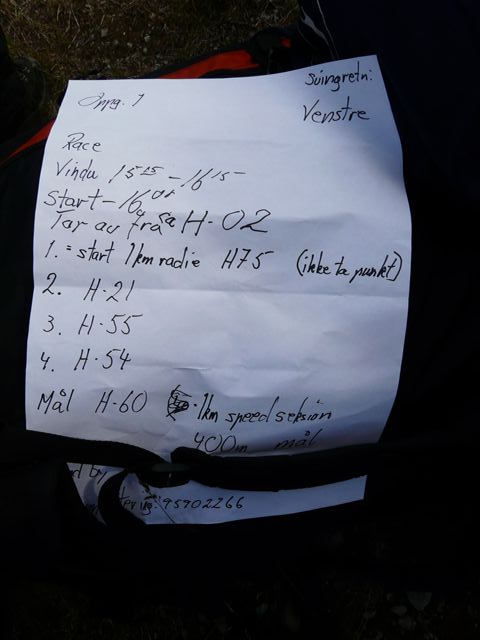 Oppg. 1
Svingretn:
Venstre
Race
Vindu 15 15 - 16 15
Start - 16
Tar av fra H-02
1. = start 1km radie H75 (ikke ta punkt)
2. H-21
3. H-55
4. H-54
Mål H-60 1km speed seksion
400m mål
d by
ring: 95902266